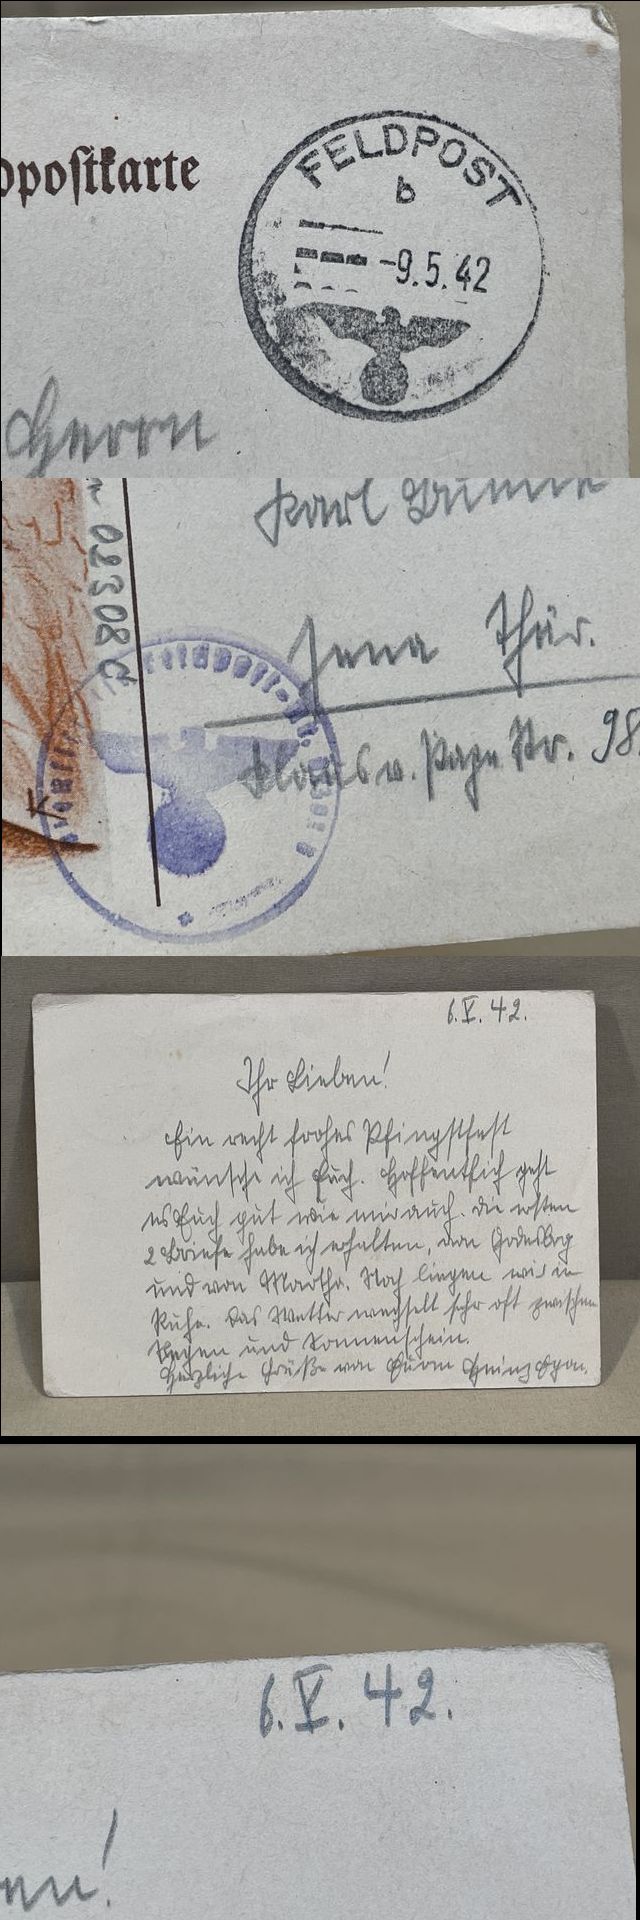 dpostkarte
FELDPOST
b
-9.5.42
Herrn
Karl
Jena Thür.
Klaus v. Pape Str. 98.
08320
6.V.42.
Ihr Lieben!
Ein recht frohes Pfingstfest
wünsche ich Euch. Hoffentlich geht
es Euch gut wie mir auch. Die ersten
2 Briefe habe ich erhalten, von Godesbg
und von Martha. Noch liegen wir in
Ruhe. Das Wetter wechselt sehr oft zwischen
Regen und Sonnenschein.
Herzliche Grüße von Eurem Heinz
6.V.42.
en!